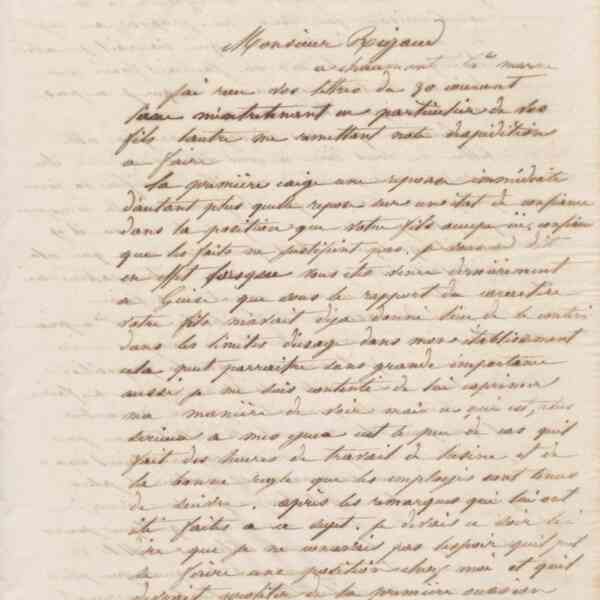 Monsieur Rigaud
a chaumont hte marne
J'ai recu vos lettres du 30 courant
l'une m'entretenant en particulier de vos
fils l'autre me remettant note dexpédition
a faire
La première exige une reponse immédiate
d'autant plus quelle repose sur un état de confiance
dans la position que votre fils occupe ici, confiance
que les faits ne justifient pas, je vous ai dit
en effet lorsque vous etes venu dernièrement
a Guise que sous le rapport du caractère
votre fils m'avait deja donné lieu de le contenir
dans les limites d'usage dans mon établissement
cela peut parraitre sans grande importance
aussi je me suis contenté de lui exprimer
ma manière de voir mais ce qui est plus
serieux a mes yeux est le peu de cas quil
fait des heures de travail de lusine et de
la bonne regle que les employés sont tenus
de suivre. après les remarques qui lui ont
été faites a ce sujet. je devais ce soir lui
dire que je ne conservais pas l'espoir quil put
se faire une position chez moi et quil
devrait profiter de la première occasion